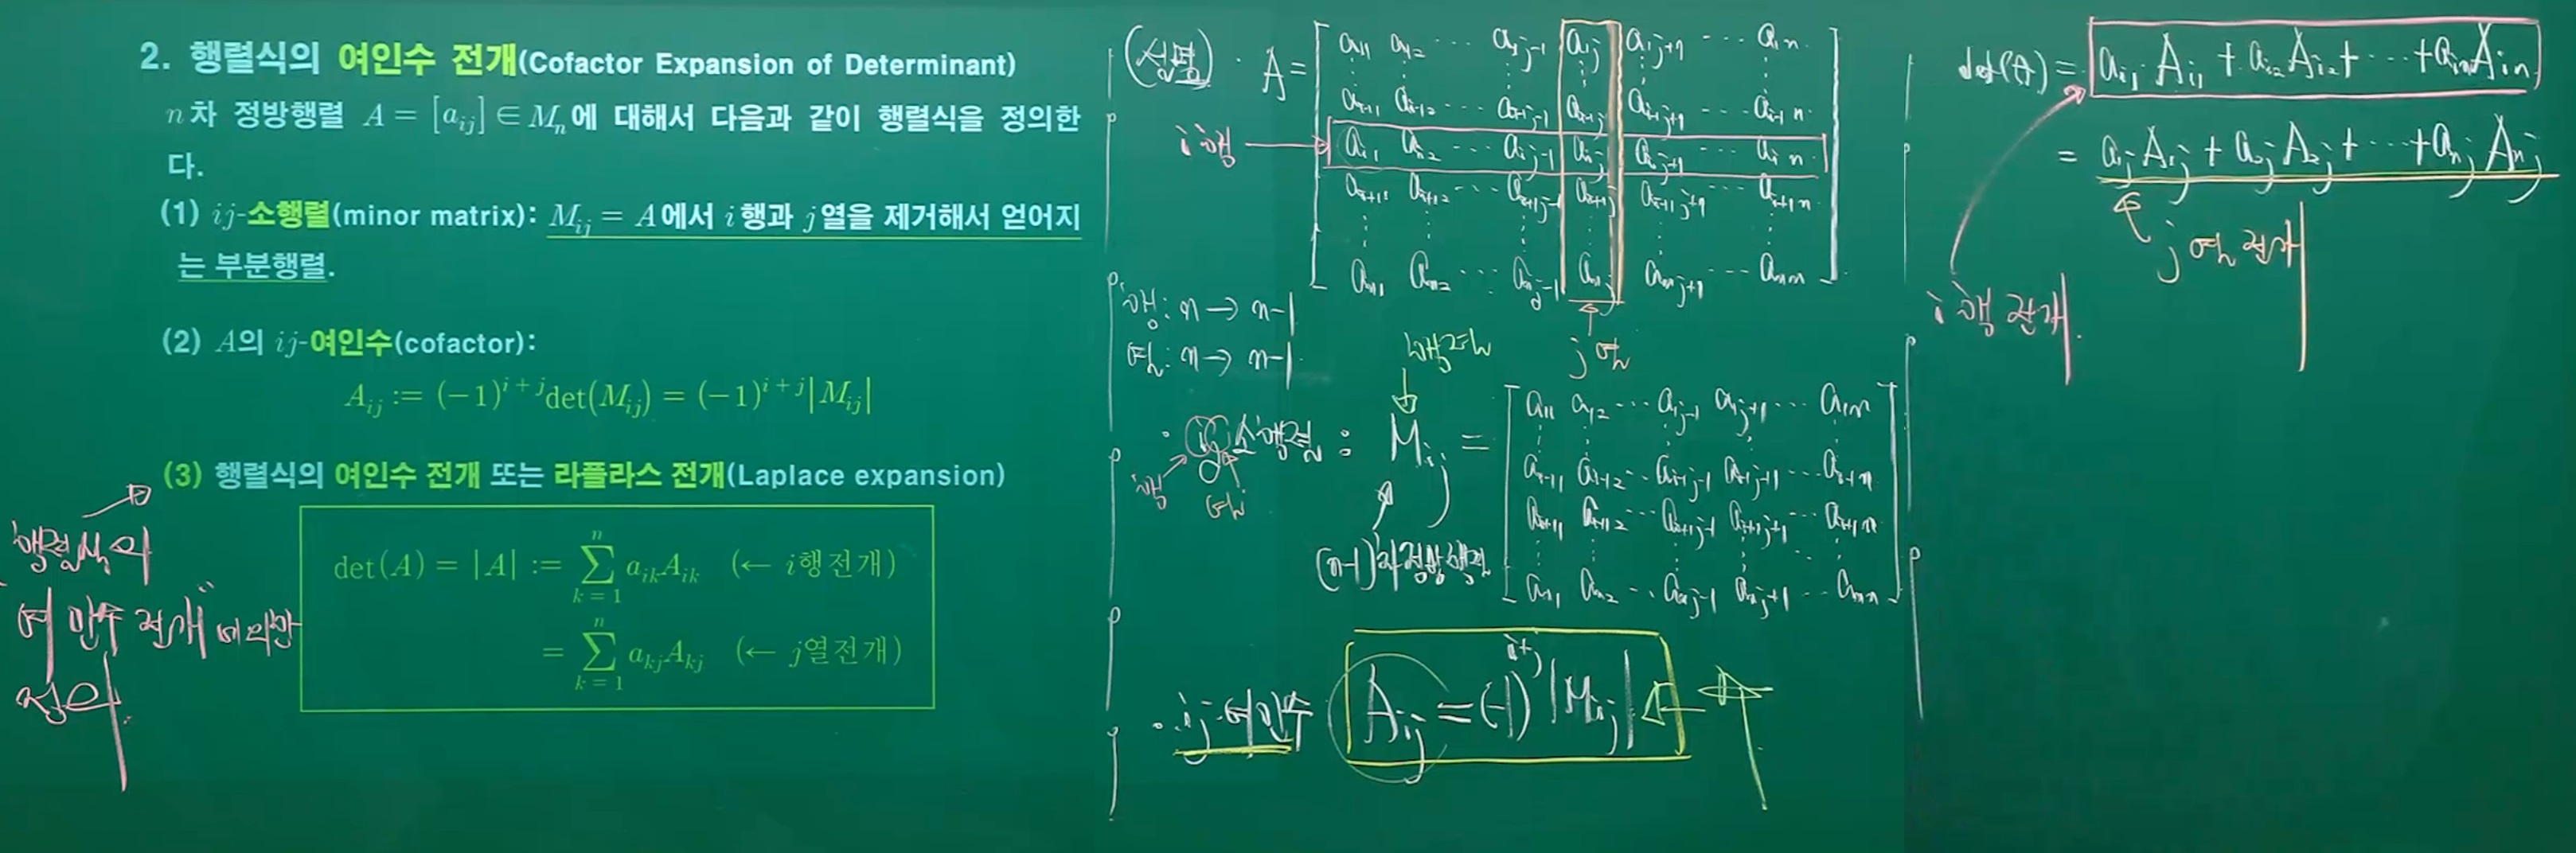 2. 행렬식의 여인수 전개(Cofactor Expansion of Determinant)
n차 정방행렬 A = [a_{ij}] ∈ M_n에 대해서 다음과 같이 행렬식을 정의한
다.
(1) ij-소행렬(minor matrix): M_{ij} = A에서 i행과 j열을 제거해서 얻어지
는 부분행렬.
(2) A의 ij-여인수(cofactor):
A_{ij} := (-1)^{i+j}det(M_{ij}) = (-1)^{i+j}|M_{ij}|
(3) 행렬식의 여인수 전개 또는 라플라스 전개(Laplace expansion)
det(A) = |A| := \sum_{k=1}^{n} a_{ik}A_{ik} (← i행전개)
= \sum_{k=1}^{n} a_{kj}A_{kj} (← j열전개)
행렬식의
"여인수 전개"에 의한
정의
(설명) · A =
a_{11} a_{12} ⋯ a_{1j-1} a_{1j} a_{1j+1} ⋯ a_{1n}
a_{i-11} a_{i-12} ⋯ a_{i-1j-1} a_{i-1j} a_{i-1j+1} ⋯ a_{i-1n}
i행 → a_{i1} a_{i2} ⋯ a_{ij-1} a_{ij} a_{ij+1} ⋯ a_{in}
a_{i+11} a_{i+12} ⋯ a_{i+1j-1} a_{i+1j} a_{i+1j+1} ⋯ a_{i+1n}
a_{n1} a_{n2} ⋯ a_{nj-1} a_{nj} a_{nj+1} ⋯ a_{nn}
j열
행: n → n-1
열: n → n-1
행렬
· ij 소행렬 : M_{ij} =
행
열
(n-1)차 정방행렬
a_{11} a_{12} ⋯ a_{1j-1} a_{1j+1} ⋯ a_{1n}
a_{i-11} a_{i-12} ⋯ a_{i-1j-1} a_{i-1j+1} ⋯ a_{i-1n}
a_{i+11} a_{i+12} ⋯ a_{i+1j-1} a_{i+1j+1} ⋯ a_{i+1n}
a_{n1} a_{n2} ⋯ a_{nj-1} a_{nj+1} ⋯ a_{nn}
· ij-여인수 A_{ij} = (-1)^{i+j} |M_{ij}| ← 수
det(A) = a_{i1}A_{i1} + a_{i2}A_{i2} + ⋯ + a_{in}A_{in}
= a_{1j}A_{1j} + a_{2j}A_{2j} + ⋯ + a_{nj}A_{nj}
j열 전개
i행 전개